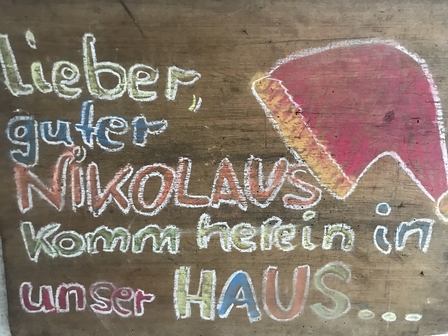 lieber,
guter
NiKOLAUS
komm herein in
unser HAUS...